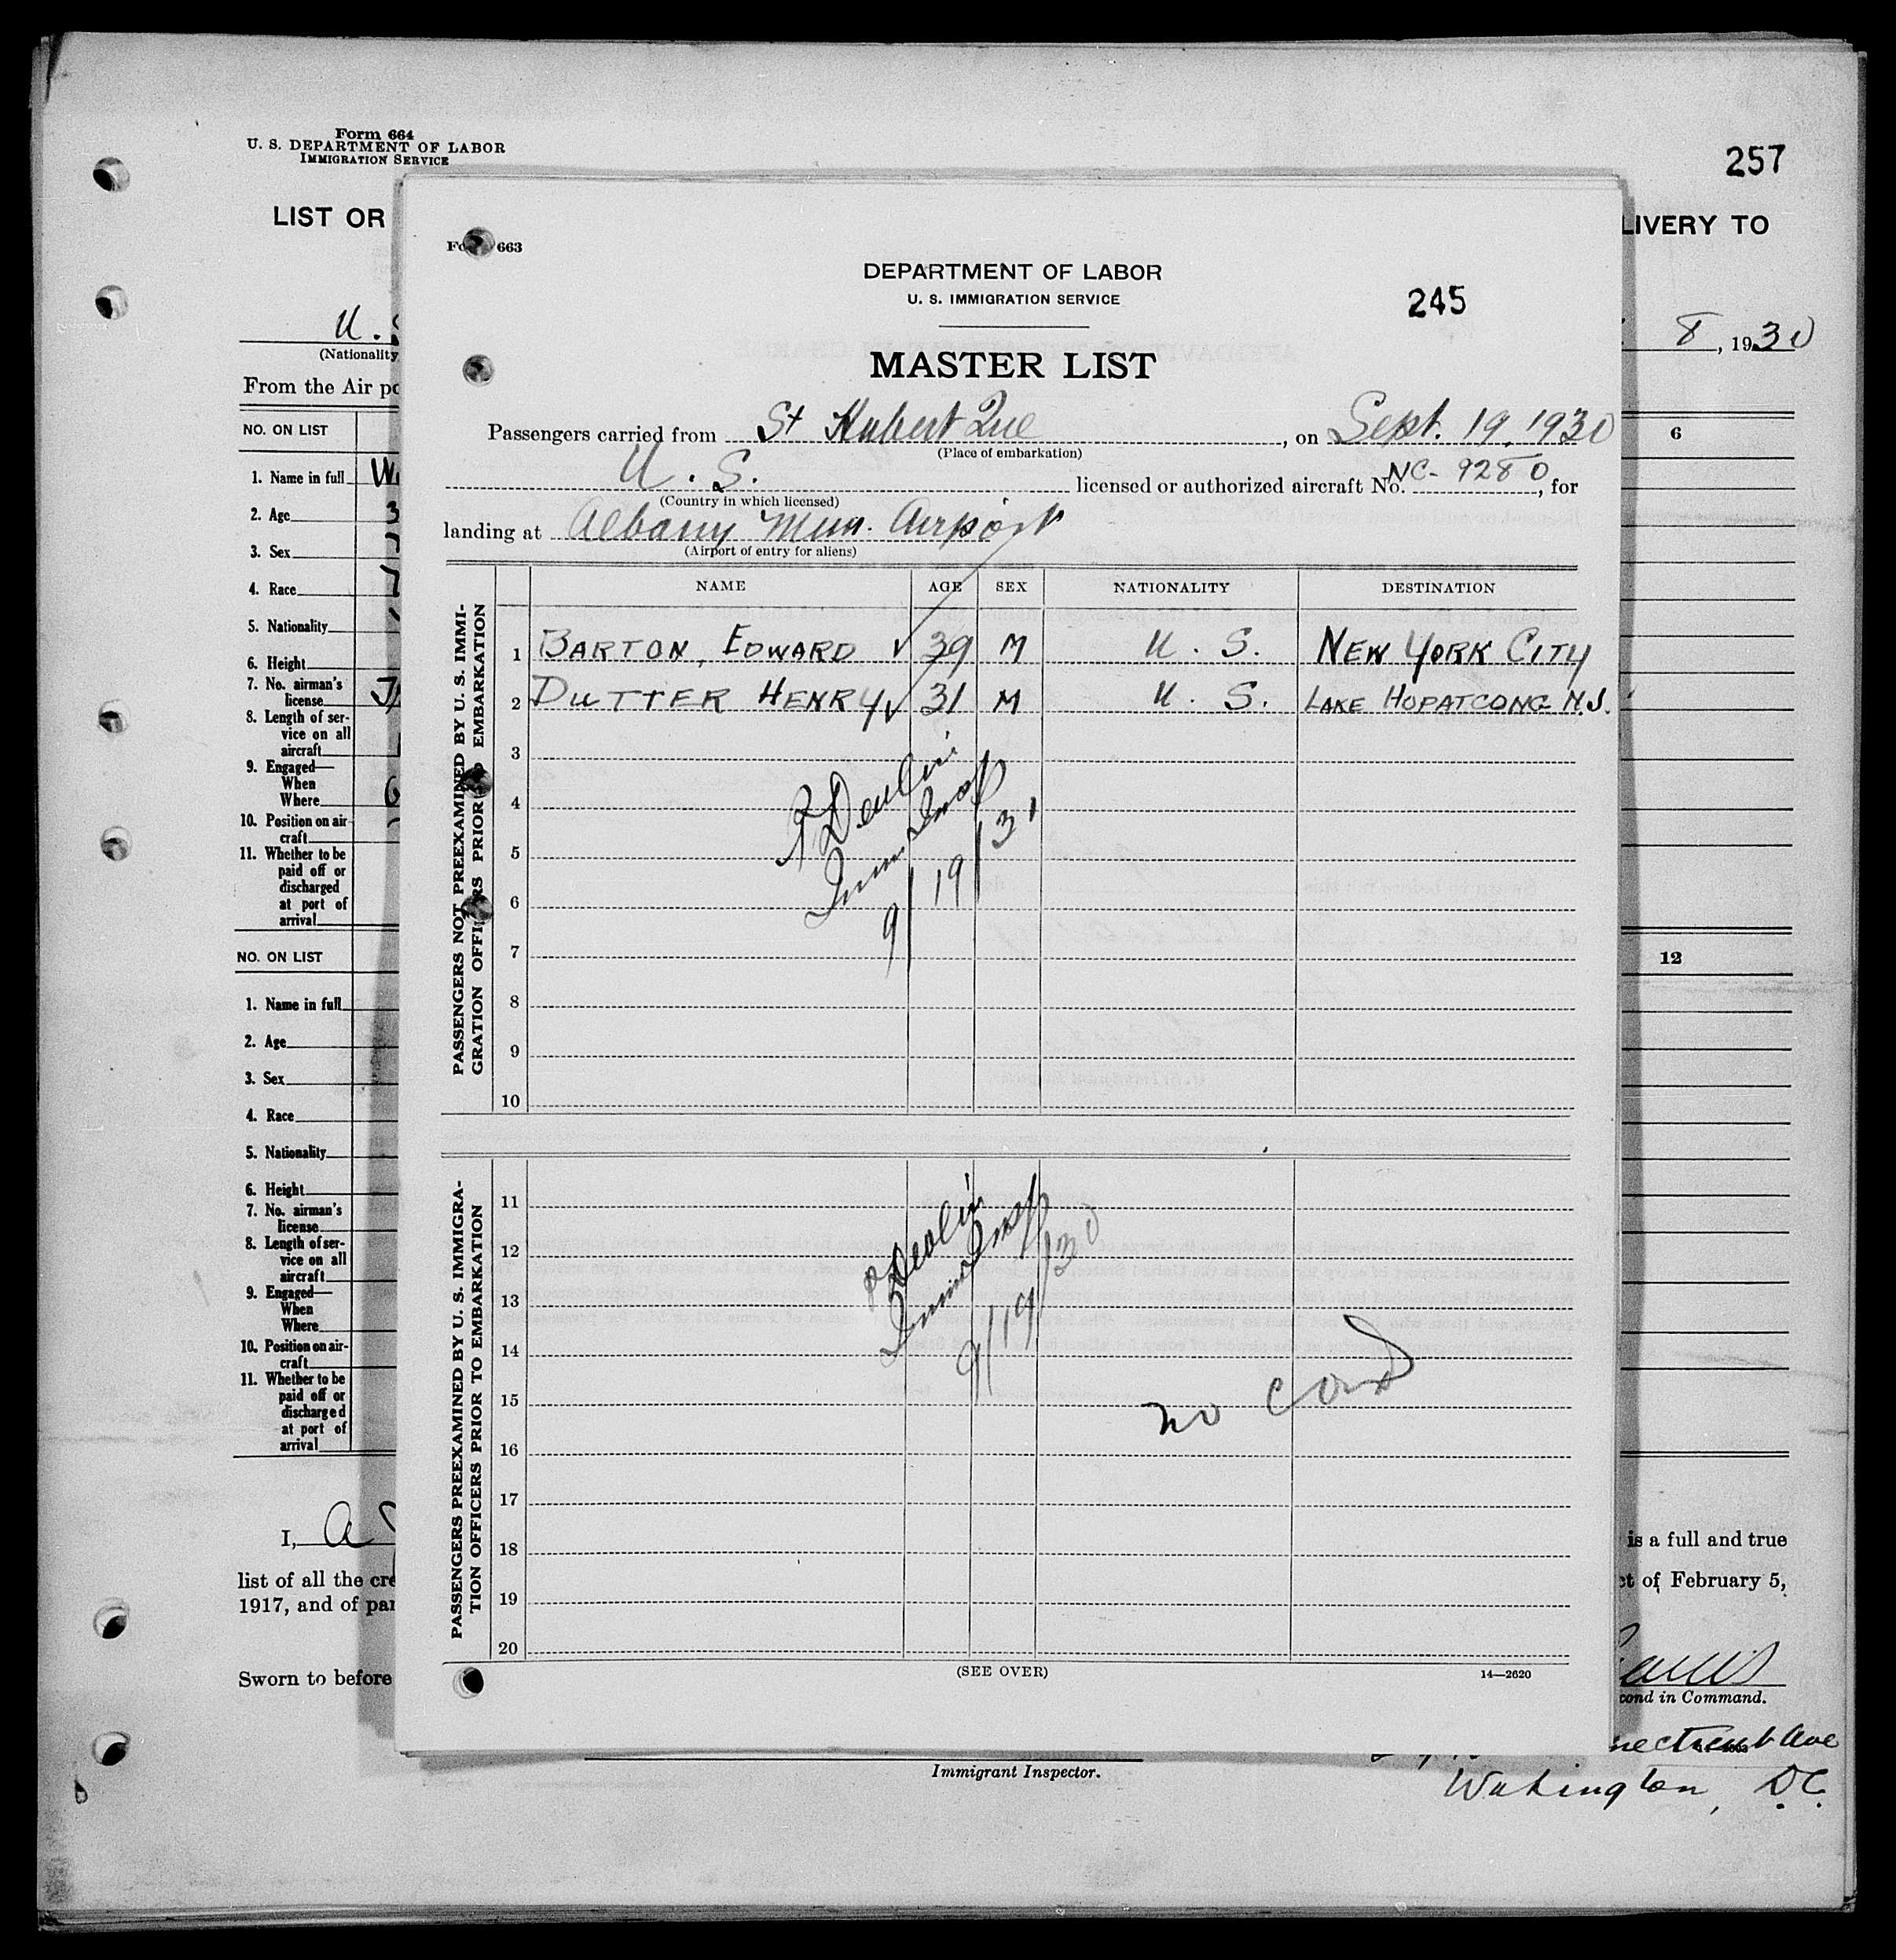 Form 664
U. S. DEPARTMENT OF LABOR
IMMIGRATION SERVICE
257
LIST OR
LIVERY TO
U. S
(Nationality
8, 1930
From the Air po
NO. ON LIST
6
1. Name in full
2. Age
3. Sex
4. Race
5. Nationality
6. Height
7. No. airman's
license
8. Length of ser-
vice on all
aircraft
9. Engaged—
When
Where
10. Position on air-
craft
11. Whether to be
paid off or
discharged
at port of
arrival
NO. ON LIST
12
1. Name in full
2. Age
3. Sex
4. Race
5. Nationality
6. Height
7. No. airman's
license
8. Length of ser-
vice on all
aircraft
9. Engaged—
When
Where
10. Position on air-
craft
11. Whether to be
paid off or
discharged
at port of
arrival
I, a
is a full and true
list of all the cre
ct of February 5,
1917, and of par
Sworn to before
cond in Command.
Immigrant Inspector.
necticut Ave
Wahington, D.C.
663
DEPARTMENT OF LABOR
U. S. IMMIGRATION SERVICE
245
MASTER LIST
Passengers carried from St Hubert Que, on Sept. 19, 1930
(Place of embarkation)
U. S. licensed or authorized aircraft No. NC-9280, for
(Country in which licensed)
landing at Albany Mun. Airport
(Airport of entry for aliens)
PASSENGERS NOT PREEXAMINED BY U. S. IMMI-
GRATION OFFICERS PRIOR TO EMBARKATION
NAME AGE SEX NATIONALITY DESTINATION
1 BARTON, EDWARD ✓ 39 M U. S. NEW YORK CITY
2 DUTTER HENRY ✓ 31 M U. S. LAKE HOPATCONG N.J.
3
4
5
6
7
8
9
10
Devlin
Imm Insp
9/19/31
PASSENGERS PREEXAMINED BY U. S. IMMIGRA-
TION OFFICERS PRIOR TO EMBARKATION
11
12
13
14
15
16
17
18
19
20
Devlin
Imm Insp
9/19/30
no card
(SEE OVER)
14—2620